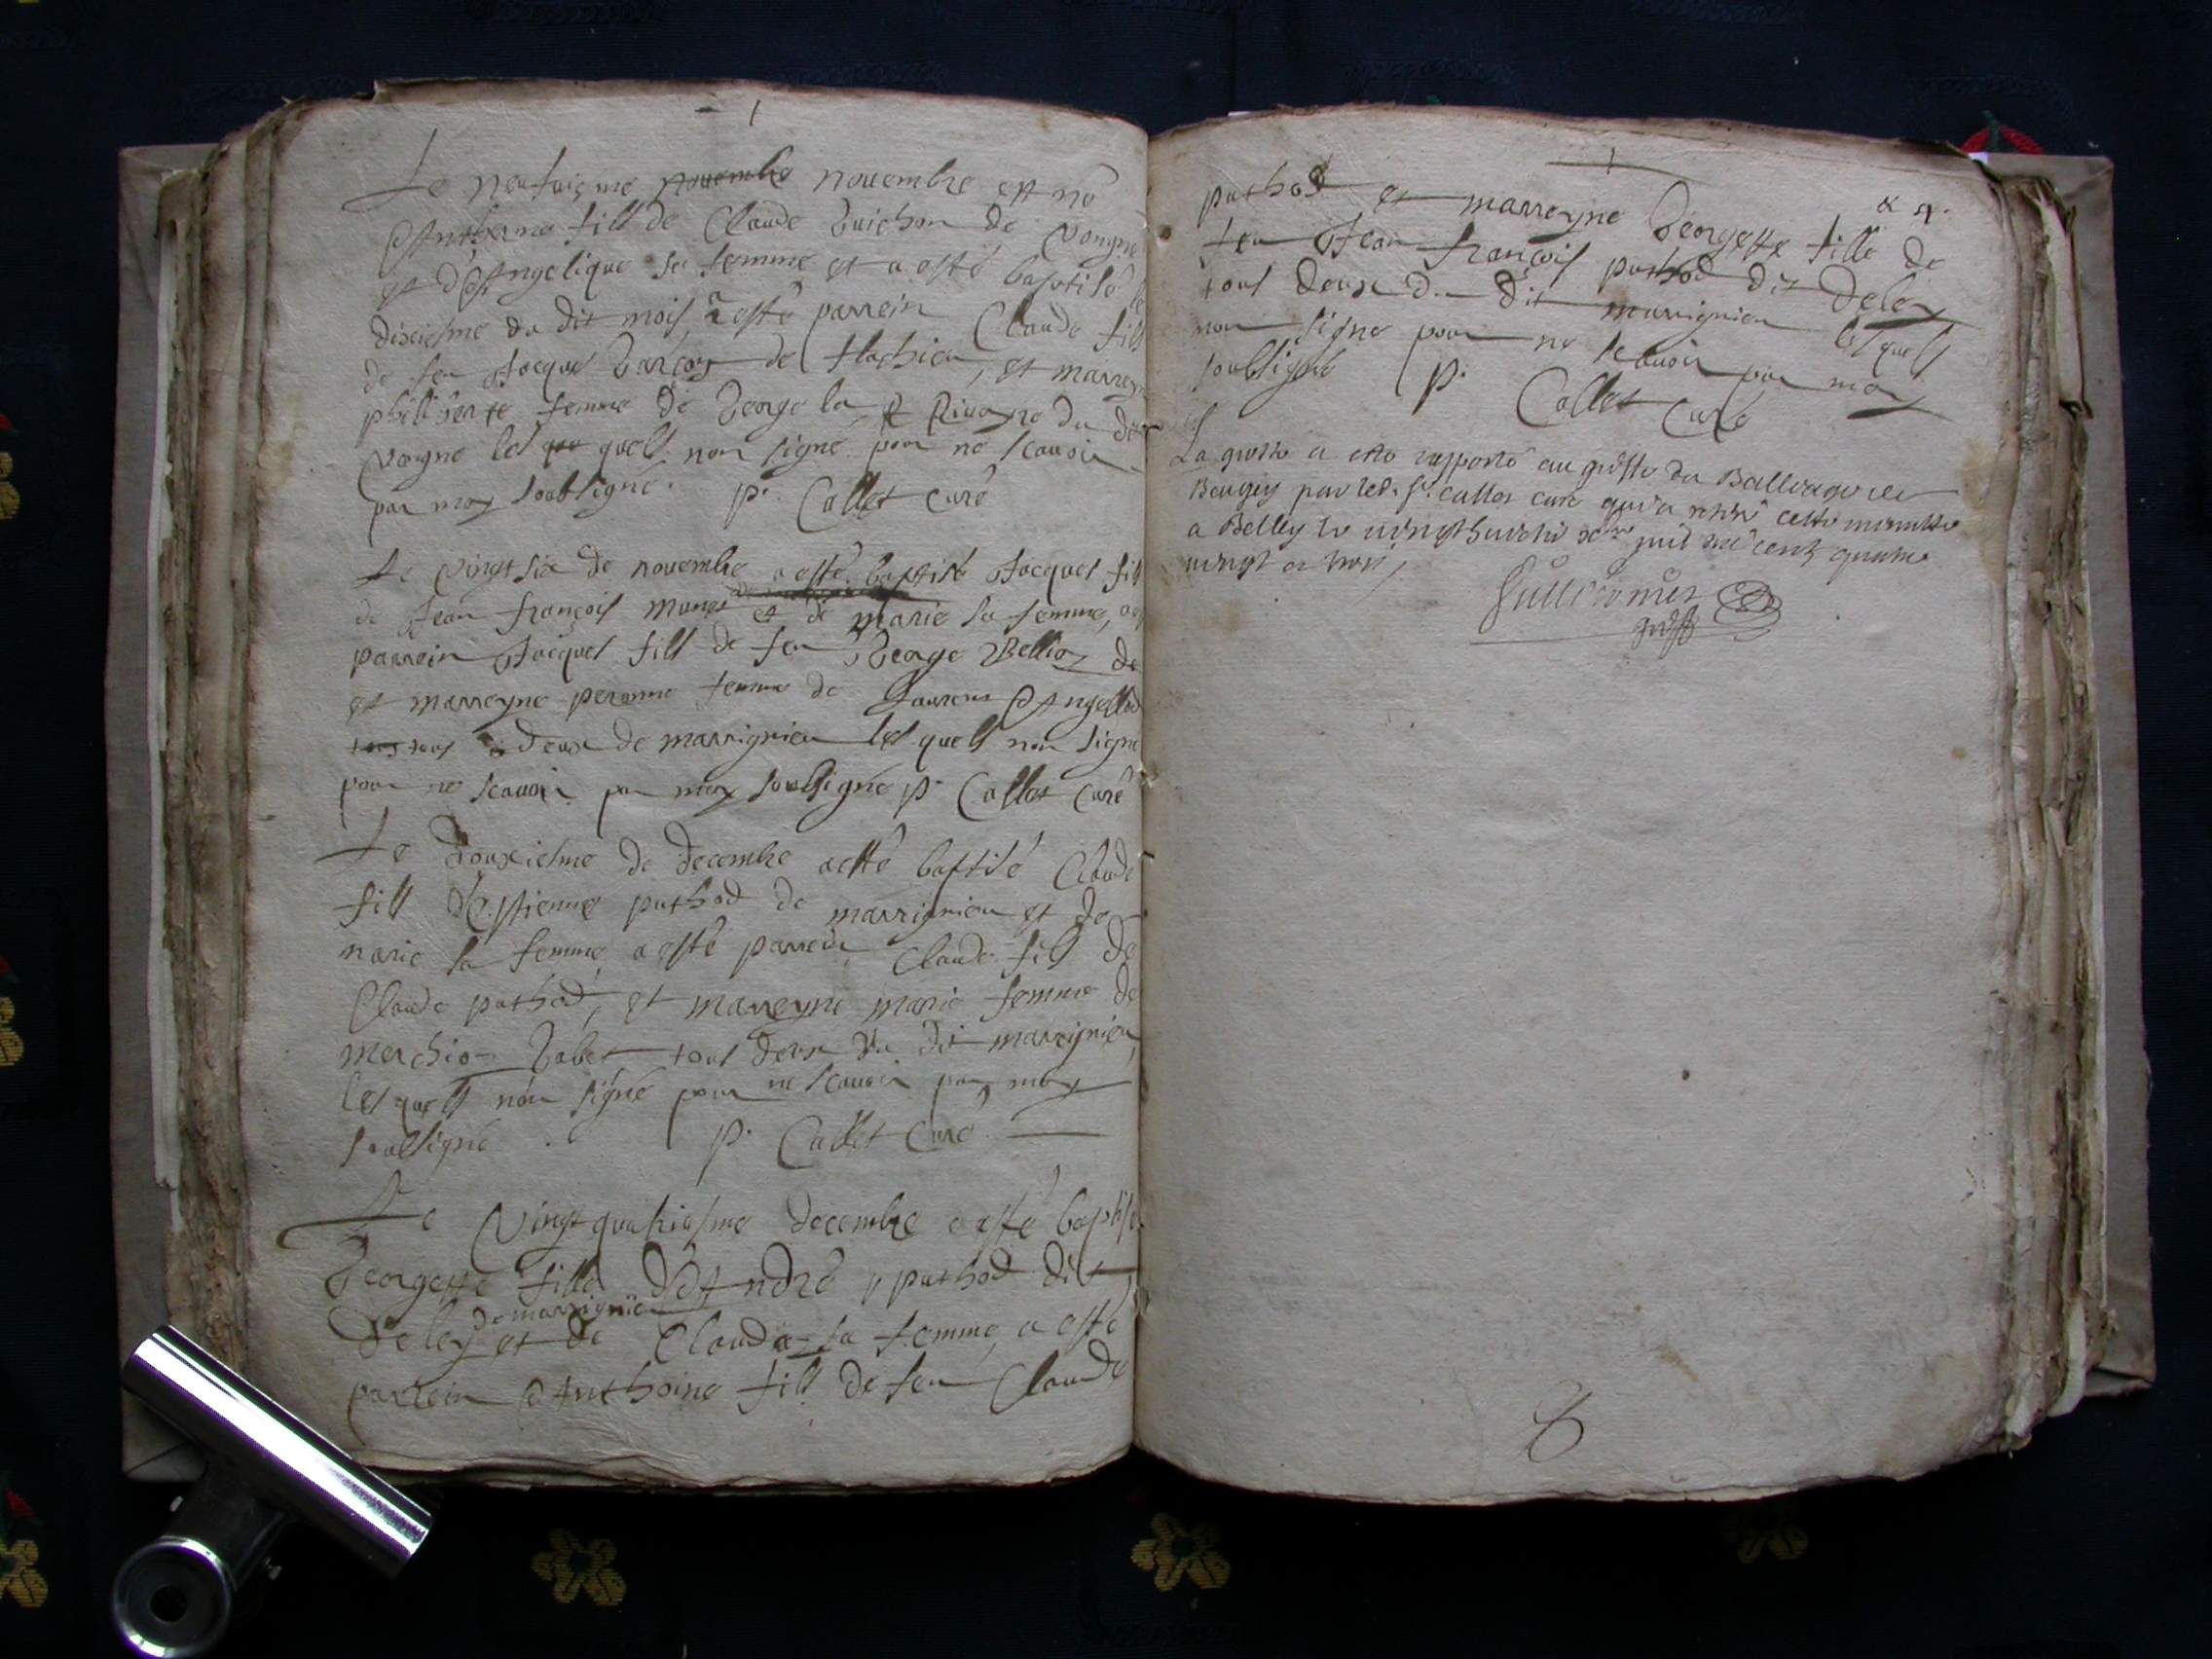 Le neufuiesme novembre novembre est né
Anthoine fill de Claude Guichon de Vongne
et d'Angelique sa femme et a esté baptisé le
dixiesme du dit mois a esté parrein Claude fill
de feu Jacque de flachieu, et marreyne
philiberte femme de George la Rivoyre du dit
Vongne lesquells non signé pour ne scauoir
par moy soubsigné. p. Callet curé
Le Vingt six de novembre a esté baptisé Jacques fill
de Jean françois et de marie sa femme, a esté
parrein Jacques fill de feu George Bellioz de
et marreyne peronne femme de Laurens Angelloz
tous deux de marrignieu lesquells non signé
pour ne scauoir par moy soubsigné p. Callet Curé
Le douxiesme de decembre a esté baptisé Claude
fill d'Estienne puthod de marrignieu et de
marie sa femme a esté parrein Claude fill de
Claude puthod, et marreyne marie femme de
merchior Gabet tous deux du dit marrignieu,
lesquells non signé pour ne scauoir par moy
soubsigné. p. Callet Curé
Le Vingt quatriesme decembre a esté baptisé
Georgette fille d'André puthod dit
de marrignieu
Deley et de Clauda sa femme, a esté
parrein Anthoine fill de feu Claude
puthod et marreyne Georgette fille de
feu Jean françois puthod dit Deley
tous deux du dit marrignieu lesquells
non signé pour ne scauoir par moy
soubsigné p. Callet Curé
La grosse a esté rapporté au greffe du Bailliage de
Beugey par led. sr. Callet curé qui a retiré cette minutte
a Belley le vingt huict mil six cents quattre
vingt et trois